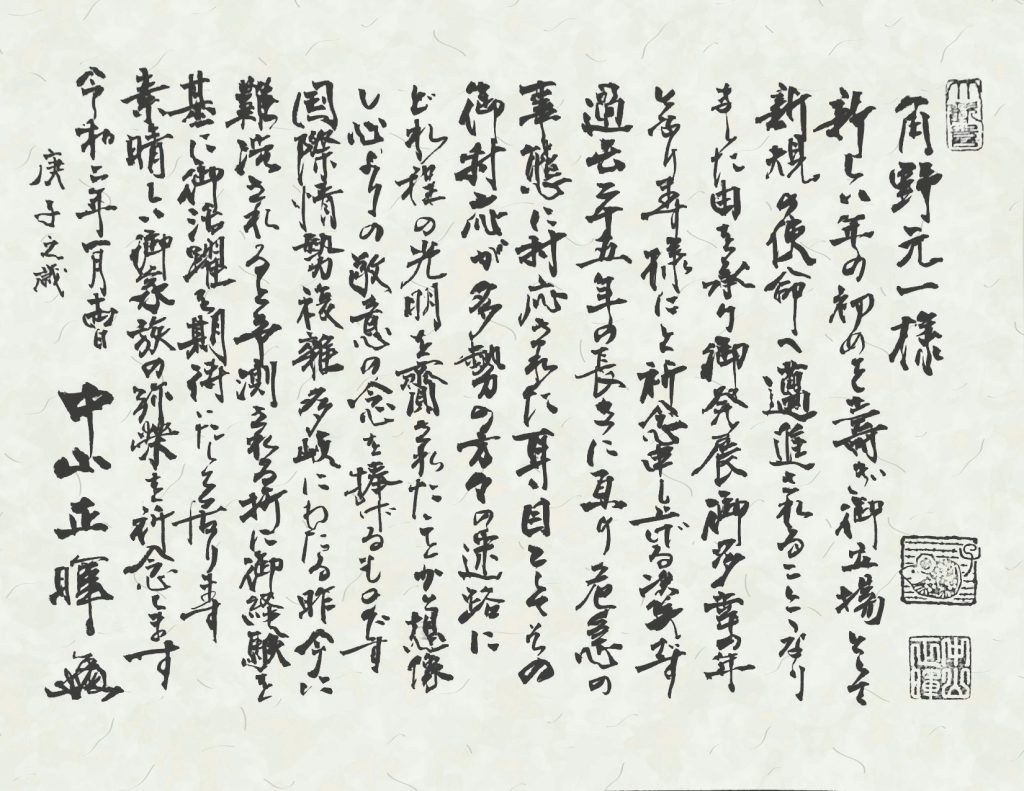 角野元一様
新しい年の初めを壽ぎ御立場として
新規の使命へ邁進されることゝなり
ました由を承り御発展御多幸の年
となり再様にと祈念申し上げる次第です
過去二十五年の長きに亘り危急の
事態に対応された耳目としての
御対応が多勢の方々の迷路に
どれ程の光明を齎されたことかと想像
し心よりの敬意の念を捧げるものです
国際情勢複雑多岐にわたる昨今に
難渋されると予測される折に御経験を
基に御活躍を期待いたして居ります
素晴しい御家族の弥栄を祈念します
令和二年一月吉日
庚子之歳
中山正暉
中山正暉